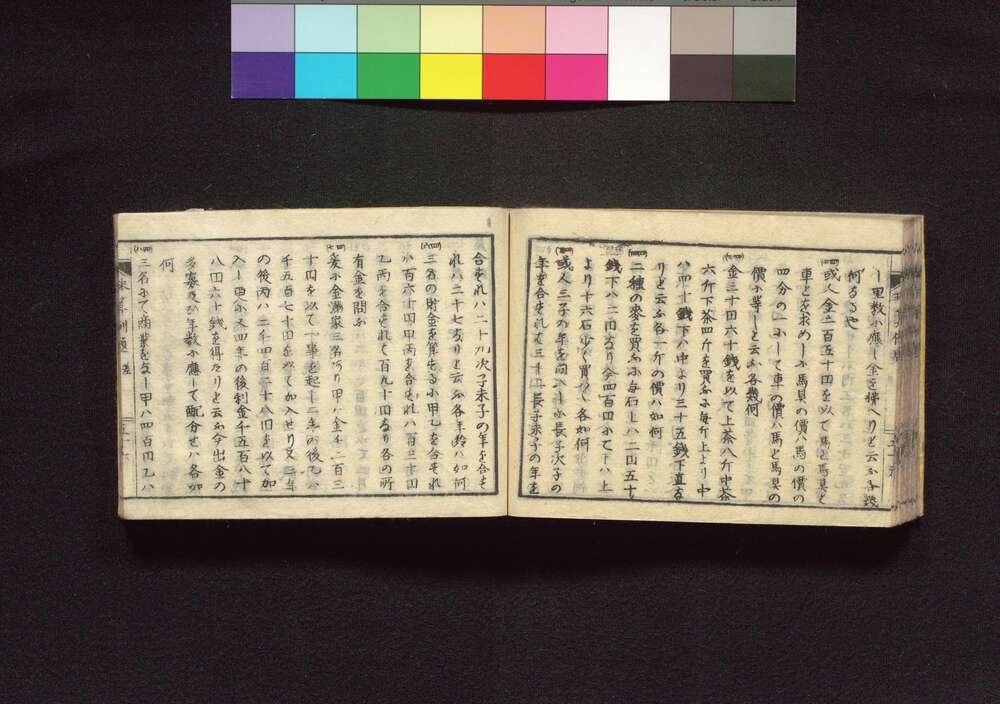 し里数に應し金を拂へりと云ふ各幾
何なるや
或人金二百五十円を以て馬と馬具と
車とを求めしに馬具の價ハ馬の價の
四分の一にして車の價ハ馬と馬具の
價に等しと云ふ各幾何
金三十円六十錢を以て上茶八斤中茶
六斤下茶四斤を買ふに毎斤上より中
ハ四十錢下ハ中より三十五錢下直な
りと云ふ各一斤の價ハ如何
二種の麥を買ふに毎石上ハ二円五十
錢下ハ二円なり今四百円にて下ハ上
より十六石多く買ふ各如何
或人三子の年を問ひしに長子次子の
年を合されて三十二長子末子の年を
合されハ二十九次子末子の年を合さ
れハ二十七なりと云ふ各年齢ハ如何
三名の財金を算するに甲乙を合され
ハ百六十円甲丙を合されハ百三十円
乙丙を合されて百九十円なり各の所
有金を問ふ
爰に金満家三名あり甲ハ金千二百三
十円を以て一事を起し二年の後乙ハ
千五百七十円を以て加入せり又二年
の後丙ハ二千四百二十八円を以て加
入し而して又四年の後利金千五百八十
八円六十錢を得たりと云ふ今出金の
多寡及ひ年数に應して配分せハ各如
何
三名にて商業をなし甲ハ四百円乙ハ